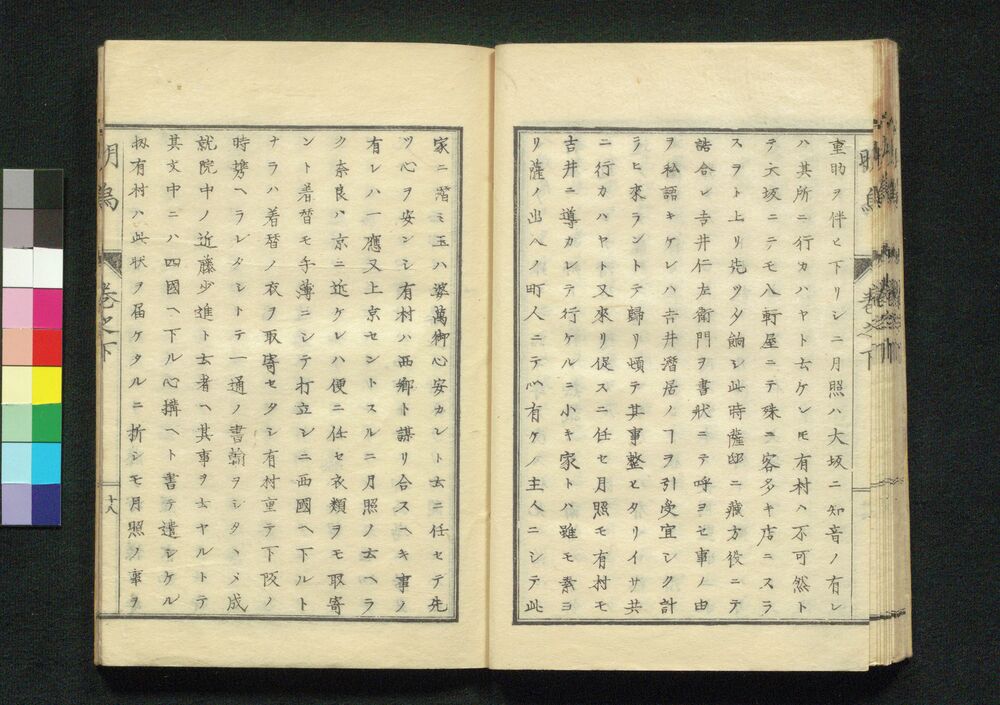 重助ヲ伴ヒ下リシニ月照ハ大坂ニ知音ノ有レ
ハ其所ニ行カハヤト云ケレㇳモ有村ハ不可然ト
テ大坂ニテモ八軒屋ニテ殊ニ客多キ店ニスラ
スヲト上リ先ツ夕餉シ此時薩邸ニ蔵方役ニテ
詰合シ吉井仁左衛門ヲ書状ニテ呼ヨセ事ノ由
ヲ私語キケレハ吉井潜居ノヿヲ引受宜シク計
ラヒ来ラントテ歸リ頓テ其事整ヒタリイサ共
ニ行カハヤト又來リ促スニ任セ月照モ有村モ
吉井ニ導カレテ行ケルニ小キ家トハ雖モ素ヨ
リ薩ノ出入ノ町人ニテ心有ケノ主人ニシテ此
家ニ潜ミ玉ハ婆萬御心安カレト云ニ任セテ先
ツ心ヲ安ンシ有村ハ西郷ト謀リ合スヘキ事ノ
有レハ一應又上京セントスルニ月照ノ云ヘラ
ク奈良ハ京ニ近ケレハ便ニ任セ衣類ヲモ取寄
ント着替モ手薄ニシテ打立シニ西國ヘ下ルト
ナラハ着替ノ衣ヲ取寄セタシ有村重テ下阪ノ
時携ヘラレタシトテ一通ノ書翰ヲシタヽメ成
就院中ノ近藤少進ト云者ヘ其事ヲ云ヤルトテ
其文中ニハ四國ヘ下ル心搆ヘト書テ遣シケル
扨有村ハ此状ヲ届ケタルニ折シモ月照ノ事ヲ
明烏
巻之下
十八